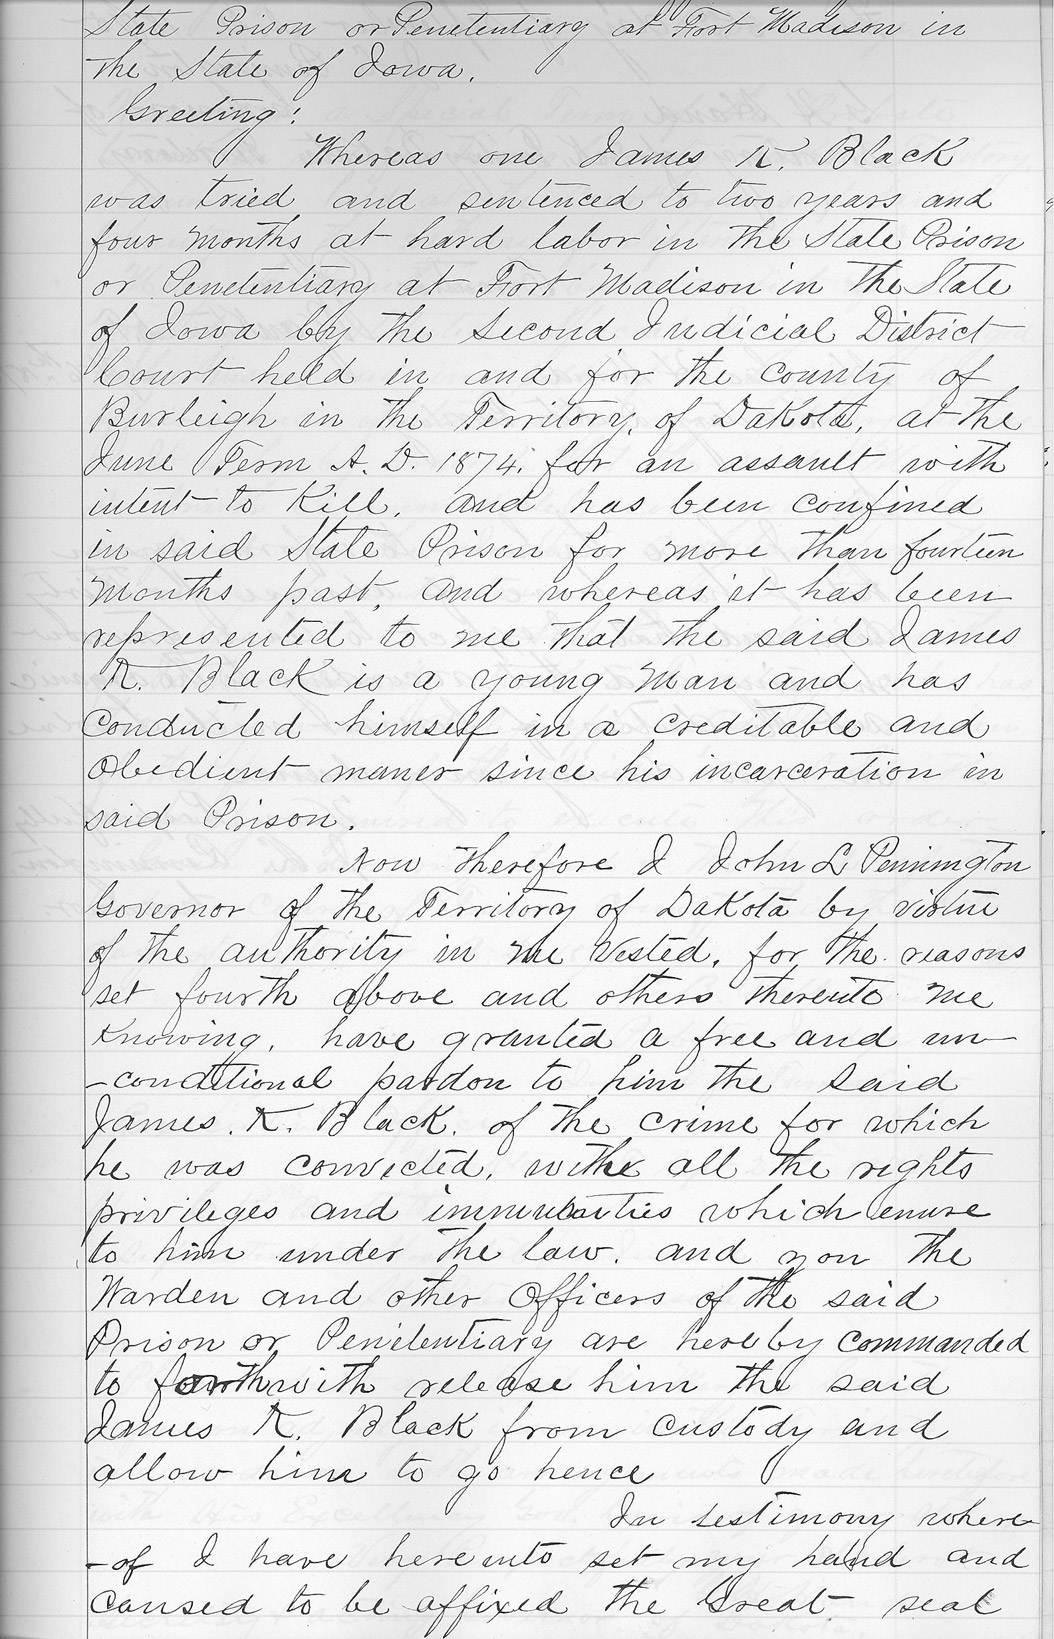 State Prison or Penetentiary at Fort Madison in
the State of Iowa.
Greeting:
Whereas one James K. Black
was tried and sentenced to two years and
four months at hard labor in the State Prison
or Penetentiary at Fort Madison in the State
of Iowa by the Second Judicial District
Court held in and for the county of
Burleigh in the Territory, of Dakota, at the
June Term A. D. 1874. for an assault with
intent to Kill, and has been confined
in said State Prison for more than fourteen
months past, and whereas it has been
represented to me that the said James
K. Black is a young man and has
conducted himself in a creditable and
obedient maner since his incarceration in
said Prison.
Now therefore I John L Pennington
Governor of the Territory of Dakota by virtue
of the authority in me vested, for the reasons
set fourth above and others thereunto me
Knowing, have granted a free and un-
-conditional pardon to him the said
James. K. Black. of the crime for which
he was convicted, with all the rights
privileges and immunities which enure
to him under the law. and you the
Warden and other Officers of the said
Prison or Penitentiary are hereby commanded
to forthwith release him the said
James K. Black from custody and
allow him to go hence
In testimony where-
-of I have hereunto set my hand and
caused to be affixed the Great seal